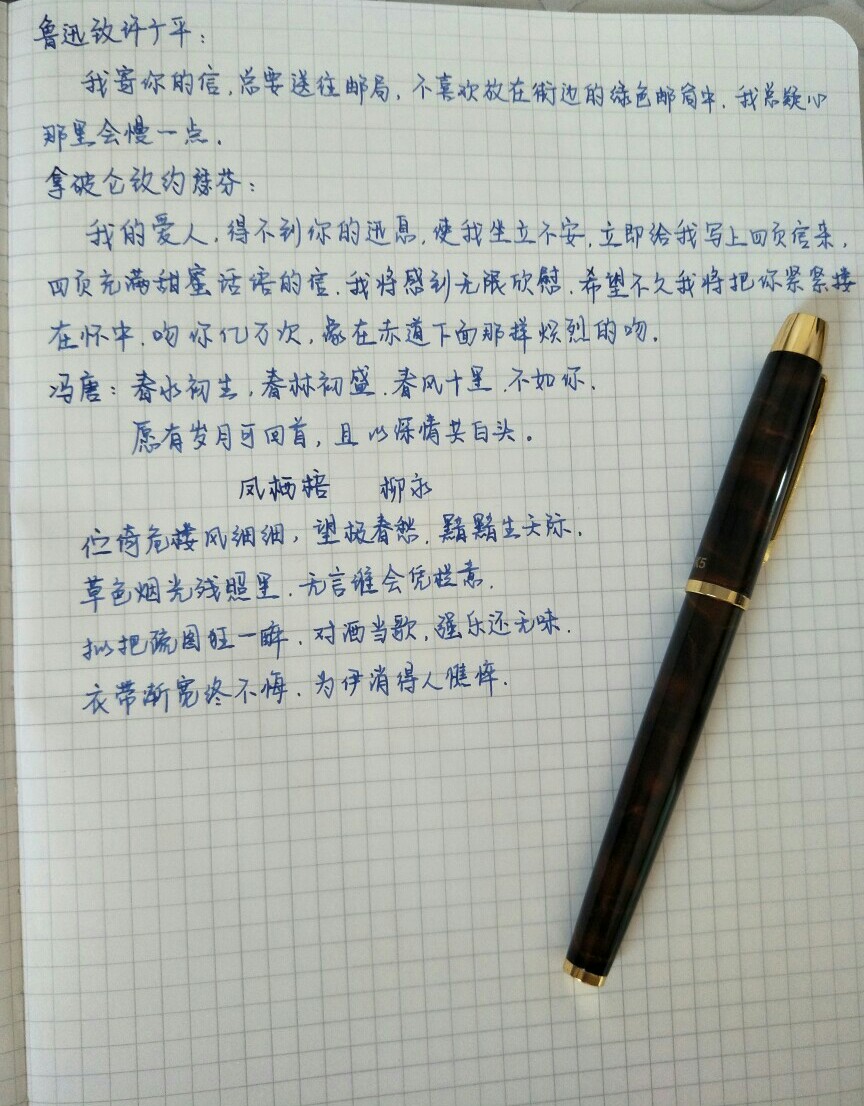 鲁迅致许广平：
我寄你的信，总要送往邮局，不喜欢放在街边的绿色邮筒中，我总疑心
那里会慢一点．
拿破仑致约瑟芬：
我的爱人，得不到你的迅息，使我坐立不安，立即给我写上四页信来，
四页充满甜蜜话语的信．我将感到无限欣慰．希望不久我将把你紧紧搂
在怀中．吻你亿万次，象在赤道下面那样炽烈的吻．
冯唐：春水初生，春林初盛．春风十里．不如你．
愿有岁月可回首，且以深情共白头。
凤栖梧 柳永
伫倚危楼风细细，望极春愁．黯黯生天际．
草色烟光残照里．无言谁会凭栏意．
拟把疏图狂一醉．对酒当歌，强乐还无味．
衣带渐宽终不悔．为伊消得人憔悴．
K5